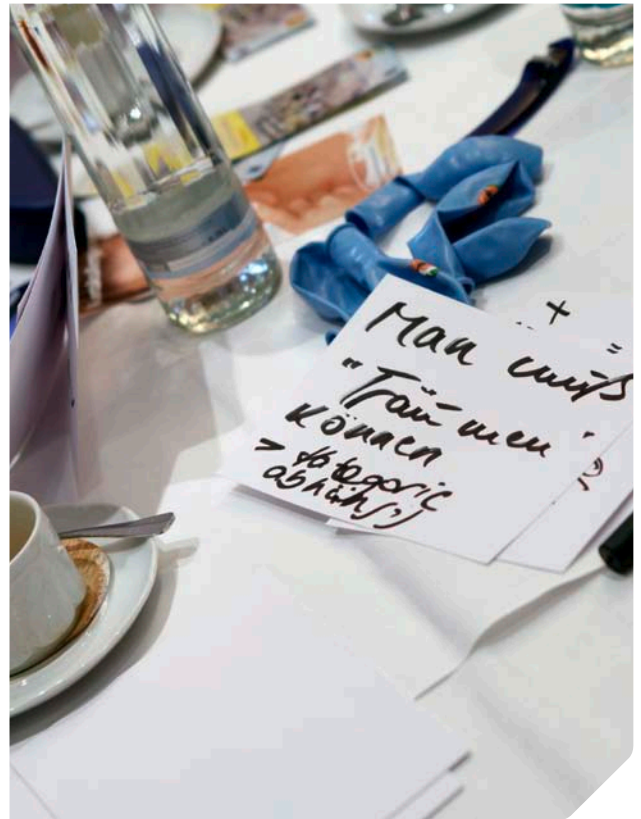 Man muß
"Träumen"
können
> kategorie
abhängig
+